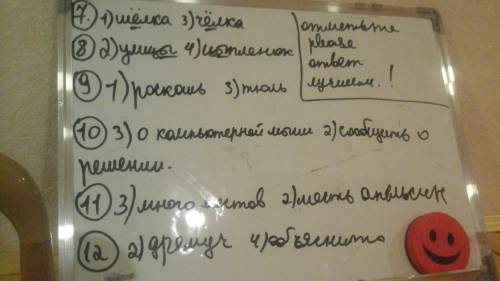 7. 1) шёлка 3) чёлка
8 2) улицы 4) цыпленок
9 1) роскошь 3) тюль
10 3) о компьютерной мыши 2) сообщить о
решении.
11 3) много листов 2) шесть апельсин
12 2) дремуч 4) объяснить
отметьте
please
ответ
лучшим.!